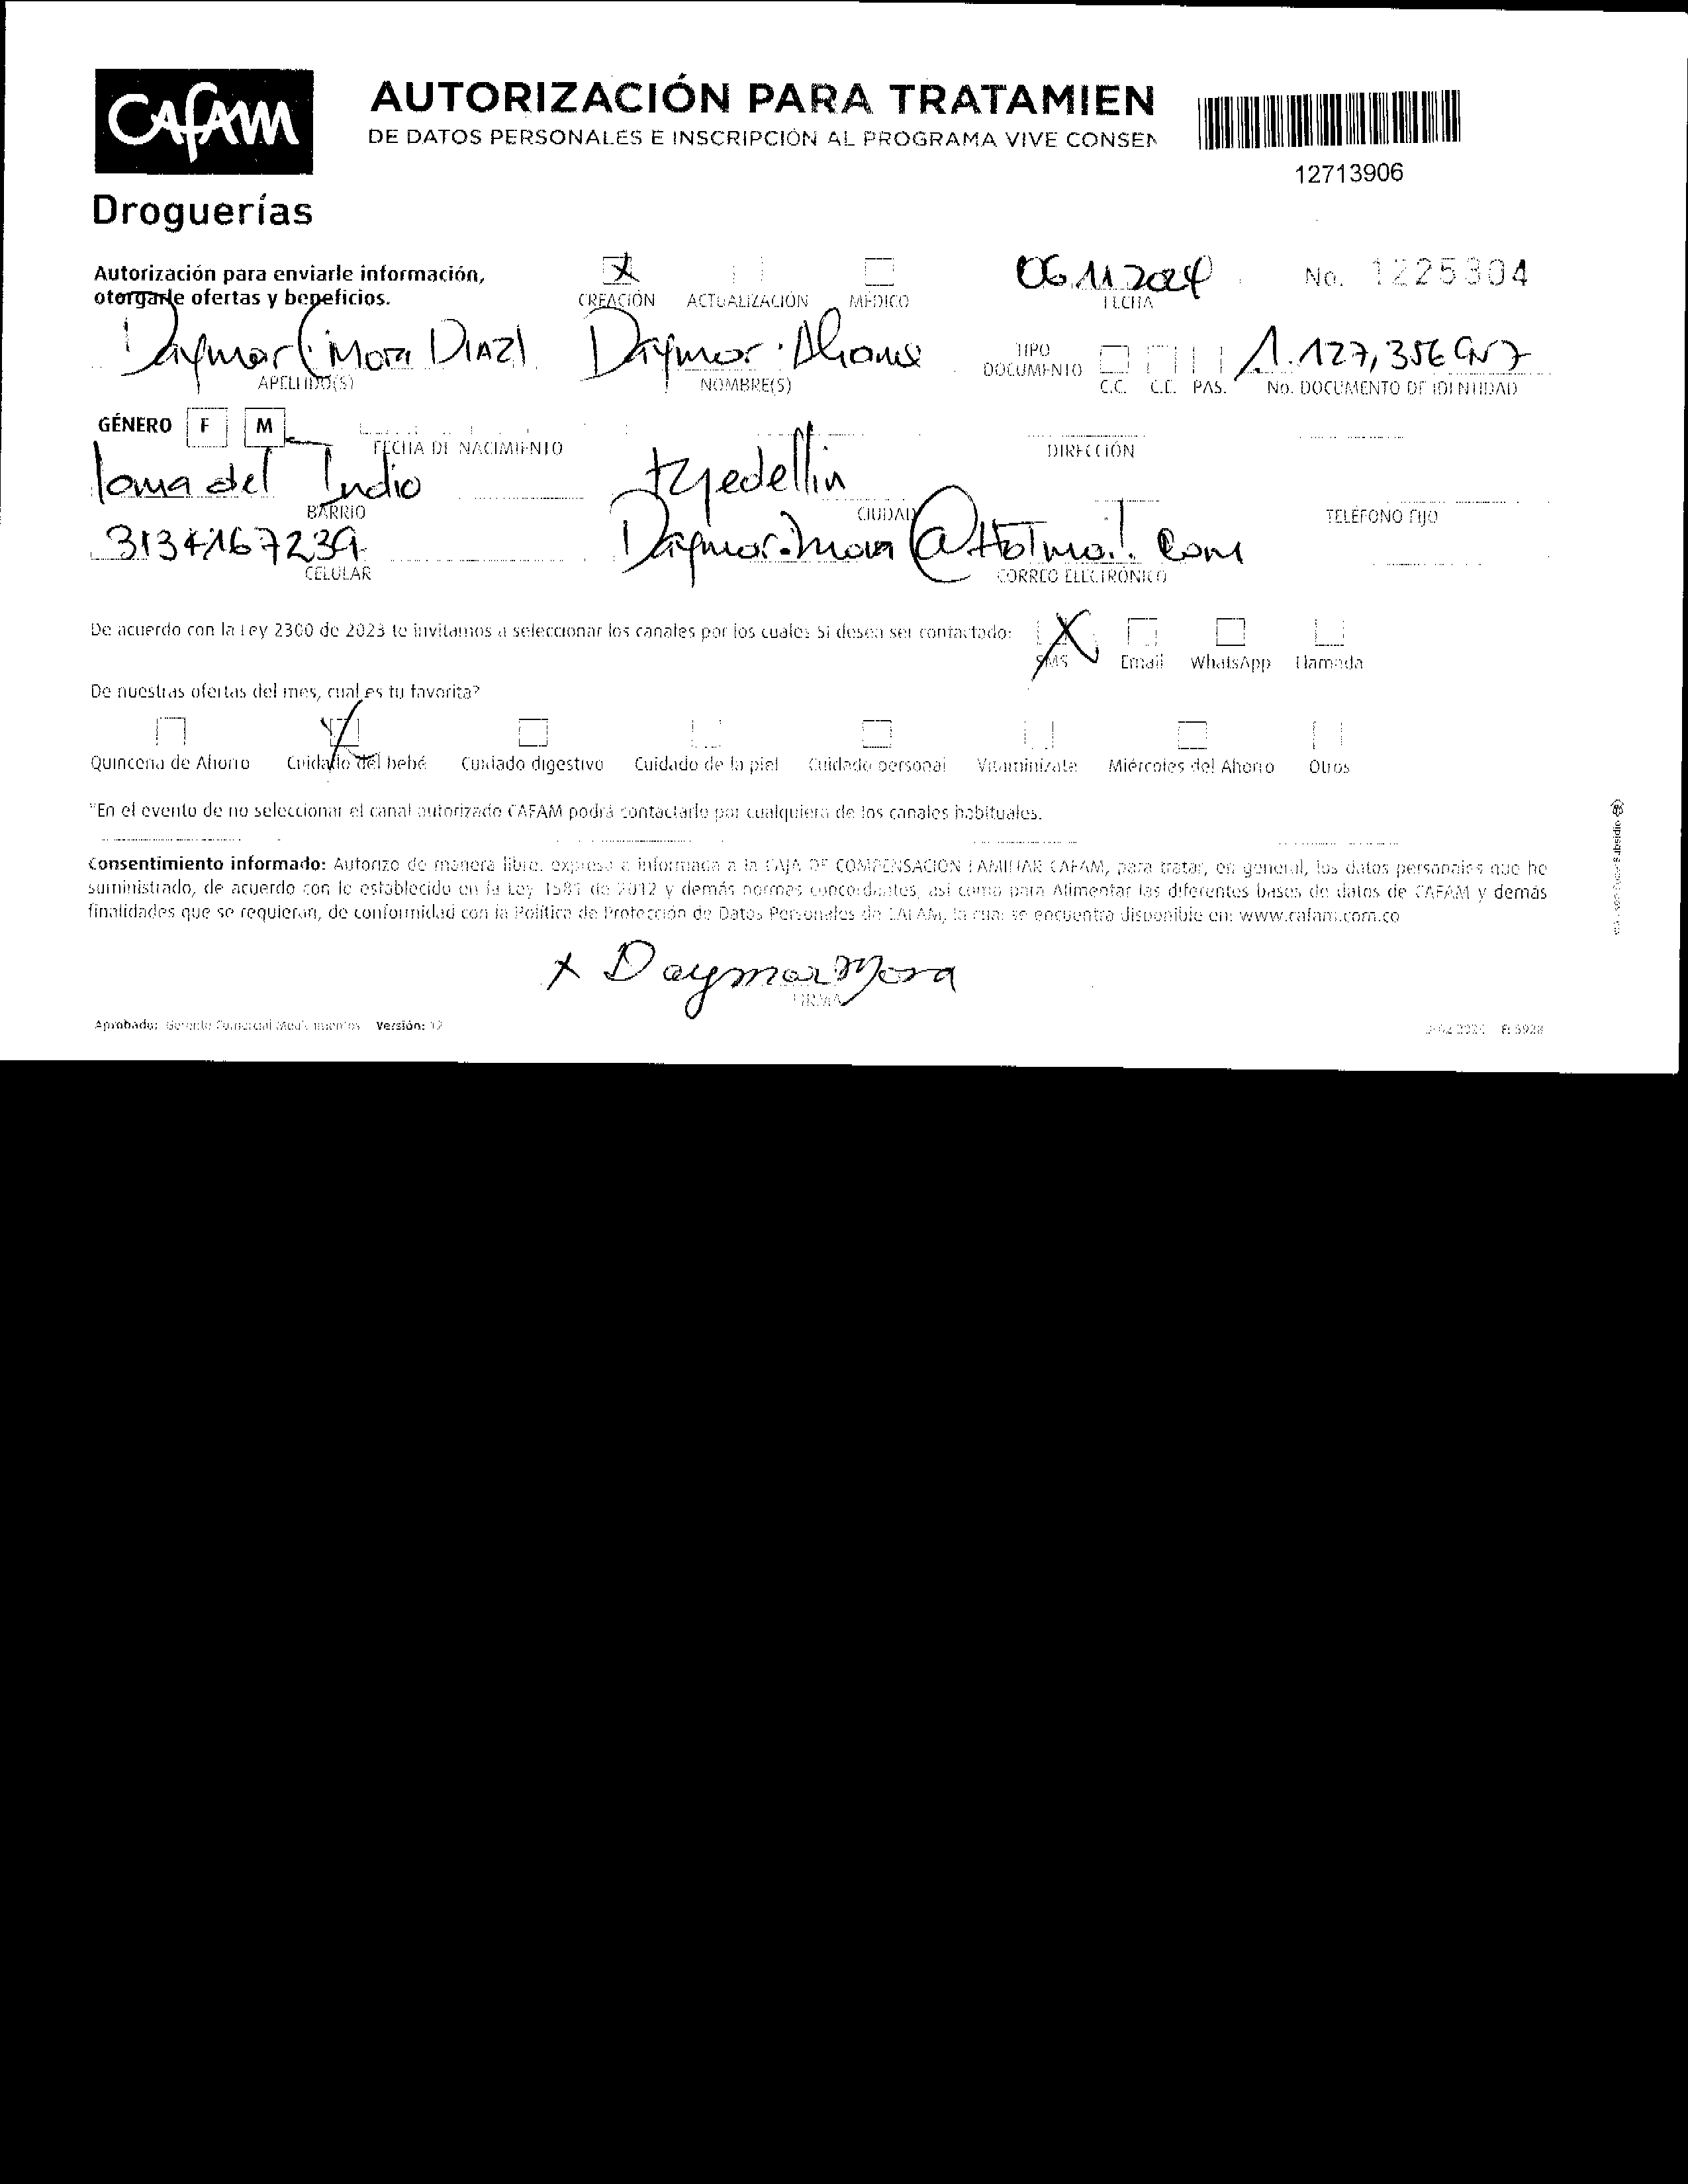 CAFAM
Droguerías
AUTORIZACIÓN PARA TRATAMIEN
DE DATOS PERSONALES E INSCRIPCIÓN AL PROGRAMA VIVE CONSEN
12713906
Autorización para enviarle información,
otorgarle ofertas y beneficios.
X
CREACIÓN ACTUALIZACIÓN MÉDICO
06.11.2024
FECHA
No. 1225304
Daymar (Mora DIAZ)
APELLIDO(S)
Daymar
NOMBRE(S)
TIPO DOCUMENTO
C.C. C.E. PAS.
1.127,356
No. DOCUMENTO DE IDENTIDAD
GÉNERO F M
FECHA DE NACIMIENTO
DIRECCIÓN
loma del Indio
BARRIO
Medellin
CIUDAD
TELÉFONO FIJO
3134167239
CELULAR
Daymar.mora@Hotmail.com
CORREO ELECTRÓNICO
De acuerdo con la Ley 2300 de 2023 te invitamos a seleccionar los canales por los cuales Si desea ser contactado:
X
SMS Email WhatsApp Llamada
De nuestras ofertas del mes, cual es tu favorita?
X
Quincena de Ahorro Cuidado del bebé Cuidado digestivo Cuidado de la piel Cuidado personal Vitaminízate Miércoles del Ahorro Otros
"En el evento de no seleccionar el canal autorizado CAFAM podrá contactarlo por cualquiera de los canales habituales.
Consentimiento informado: Autorizo de manera libre, expresa e informada a la CAJA DE COMPENSACION FAMILIAR CAFAM, para tratar, en general, los datos personales que he
suministrado, de acuerdo con lo establecido en la Ley 1581 de 2012 y demás normas concordantes, así como para Alimentar las diferentes bases de datos de CAFAM y demás
finalidades que se requieran, de conformidad con la Política de Protección de Datos Personales de CAFAM, la cual se encuentra disponible en: www.cafam.com.co
x Daymar Mora
FIRMA
Aprobado: Gerente Comercial Medicamentos Versión: 12